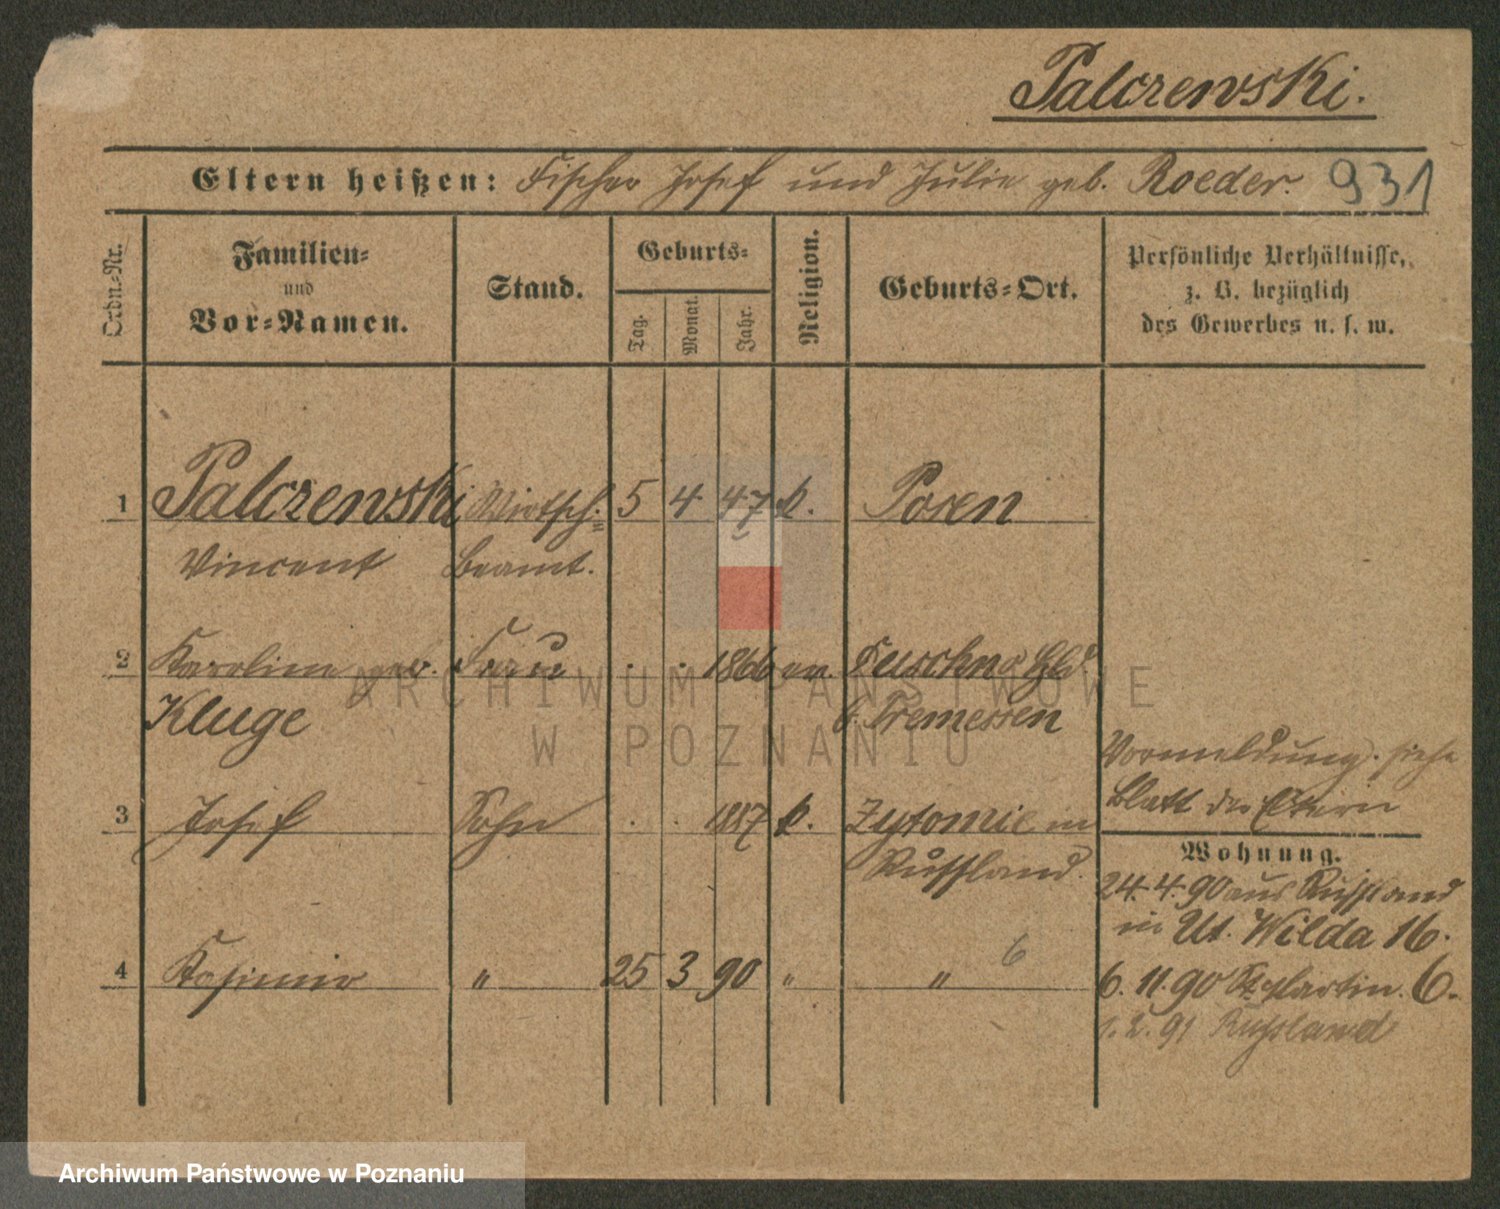 Palczewski.
Eltern heißen: Fischer Josef und Julie geb. Roeder. 931
Ordn.-Nr.
Familien-
und
Vor-Namen.
Stand.
Geburts-
Tag.
Monat.
Jahr.
Religion.
Geburts-Ort.
Persönliche Verhältnisse,
z. B. bezüglich
des Gewerbes u. s. w.
1 Palczewski Wirtsch.= 5 4 47 k. Posen
Vincent Beamt.
2 Karoline geb. Frau . . 1866 ev. Hld.
Kluge b. Tremessen
Vormeldung. siehe
Blatt der Eltern
3 Josef Sohn . . 1887 k. Zytomie in
Russland.
Wohnung.
24. 4. 90 aus Russland
in Ut. Wilda 16.
4 Kasimir " 25 3 90 " " 6
6. 11. 90 St. Martin. 6.
1. 2. 91 Russland
ARCHIWUM PAŃSTWOWE
W POZNANIU
Archiwum Państwowe w Poznaniu